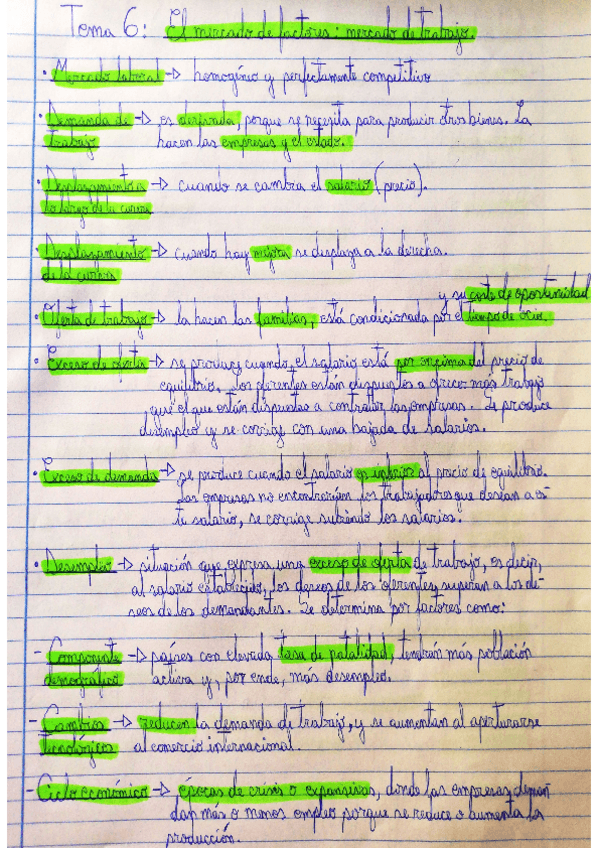 Tema 6: El mercado de factores: mercado de trabajo.
· Mercado laboral -> homogéneo y perfectamente competitivo
· Demanda de -> es derivada, porque se necesita para producir otros bienes. La
trabajo hacen las empresas y el estado.
· Desplazamiento a -> cuando se cambia el salario (precio).
lo largo de la curva
· Desplazamiento -> cuando hay mejora se desplaza a la derecha.
de la curva
y su coste de oportunidad
· Oferta de trabajo -> la hacen las familias, está condicionada por el tiempo de ocio.
· Exceso de oferta -> se produce cuando el salario está por encima del precio de
equilibrio. Los oferentes están dispuestos a ofrecer más trabajo
que el que están dispuestas a contratar las empresas. Se produce
desempleo y se corrige con una bajada de salarios.
· Exceso de demanda -> se produce cuando el salario es inferior al precio de equilibrio.
Las empresas no encontrarían los trabajadores que desean a es-
te salario, se corrige subiendo los salarios.
· Desempleo -> situación que expresa una exceso de oferta de trabajo, es decir,
al salario establecido, los deseos de los oferentes superan a los de-
seos de los demandantes. Se determina por factores como:
- Componente -> países con elevada tasa de natalidad, tendrán más población
demográfico activa y, por ende, más desempleo.
- Cambios -> reducen la demanda de trabajo, y se aumentan al aperturarse
tecnológicos al comercio internacional.
- Ciclo económico -> épocas de crisis o expansivas, donde las empresas deman-
dan más o menos empleo porque se reduce o aumenta la
producción.